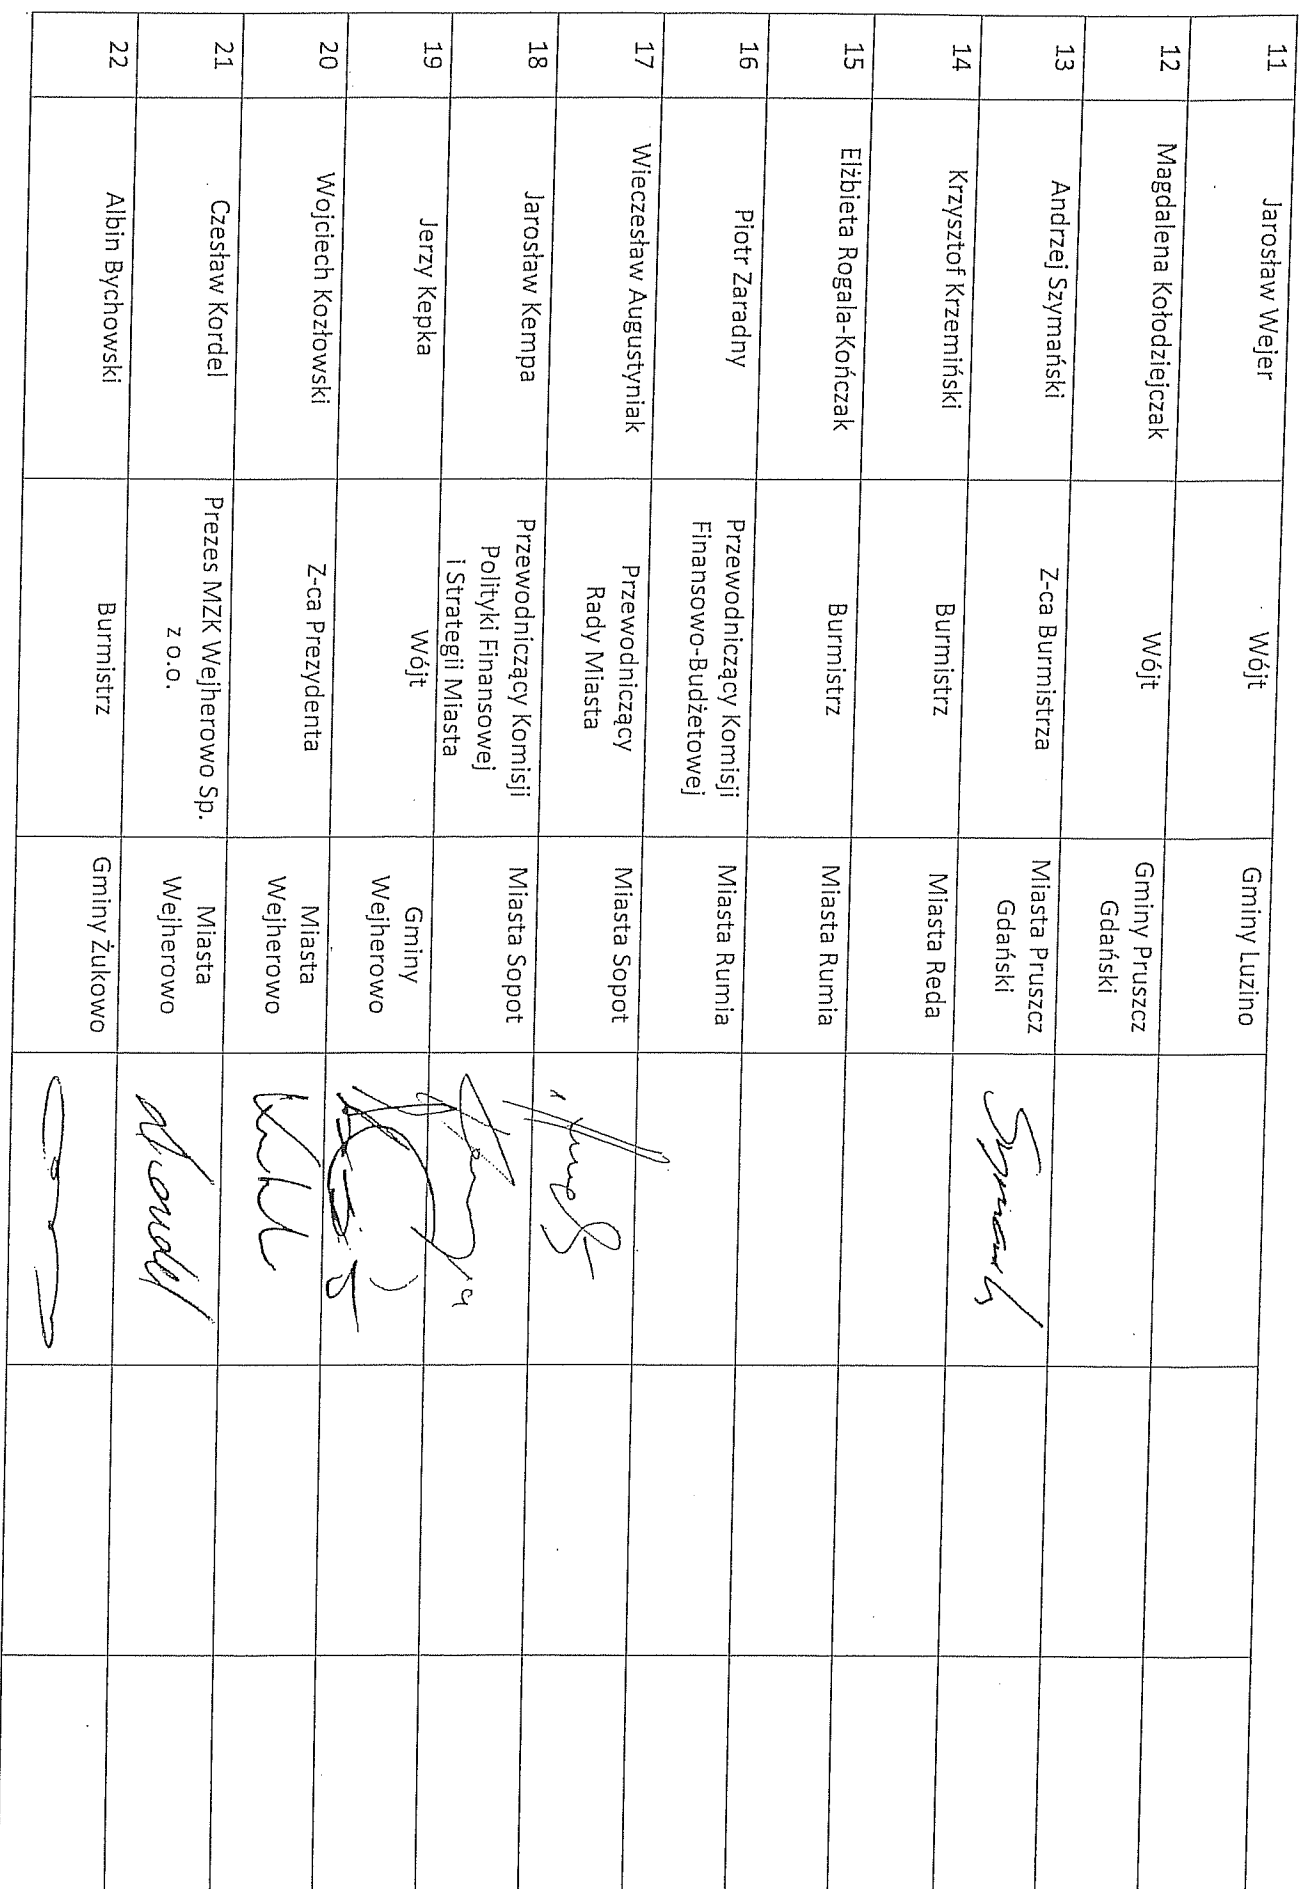 11 Jarosław Wejer Wójt Gminy Luzino
12 Magdalena Kołodziejczak Wójt Gminy Pruszcz
Gdański
13 Andrzej Szymański Z-ca Burmistrza Miasta Pruszcz
Gdański
14 Krzysztof Krzemiński Burmistrz Miasta Reda
15 Elżbieta Rogala-Kończak Burmistrz Miasta Rumia
16 Piotr Zaradny Przewodniczący Komisji Miasta Rumia
Finansowo-Budżetowej
17 Wieczesław Augustyniak Przewodniczący Miasta Sopot
Rady Miasta
18 Jarosław Kempa Przewodniczący Komisji Miasta Sopot
Polityki Finansowej
i Strategii Miasta
19 Jerzy Kepka Wójt Gminy
Wejherowo
20 Wojciech Kozłowski Z-ca Prezydenta Miasta
Wejherowo
21 Czesław Kordel Prezes MZK Wejherowo Sp. Miasta
z o.o. Wejherowo
22 Albin Bychowski Burmistrz Gminy Żukowo